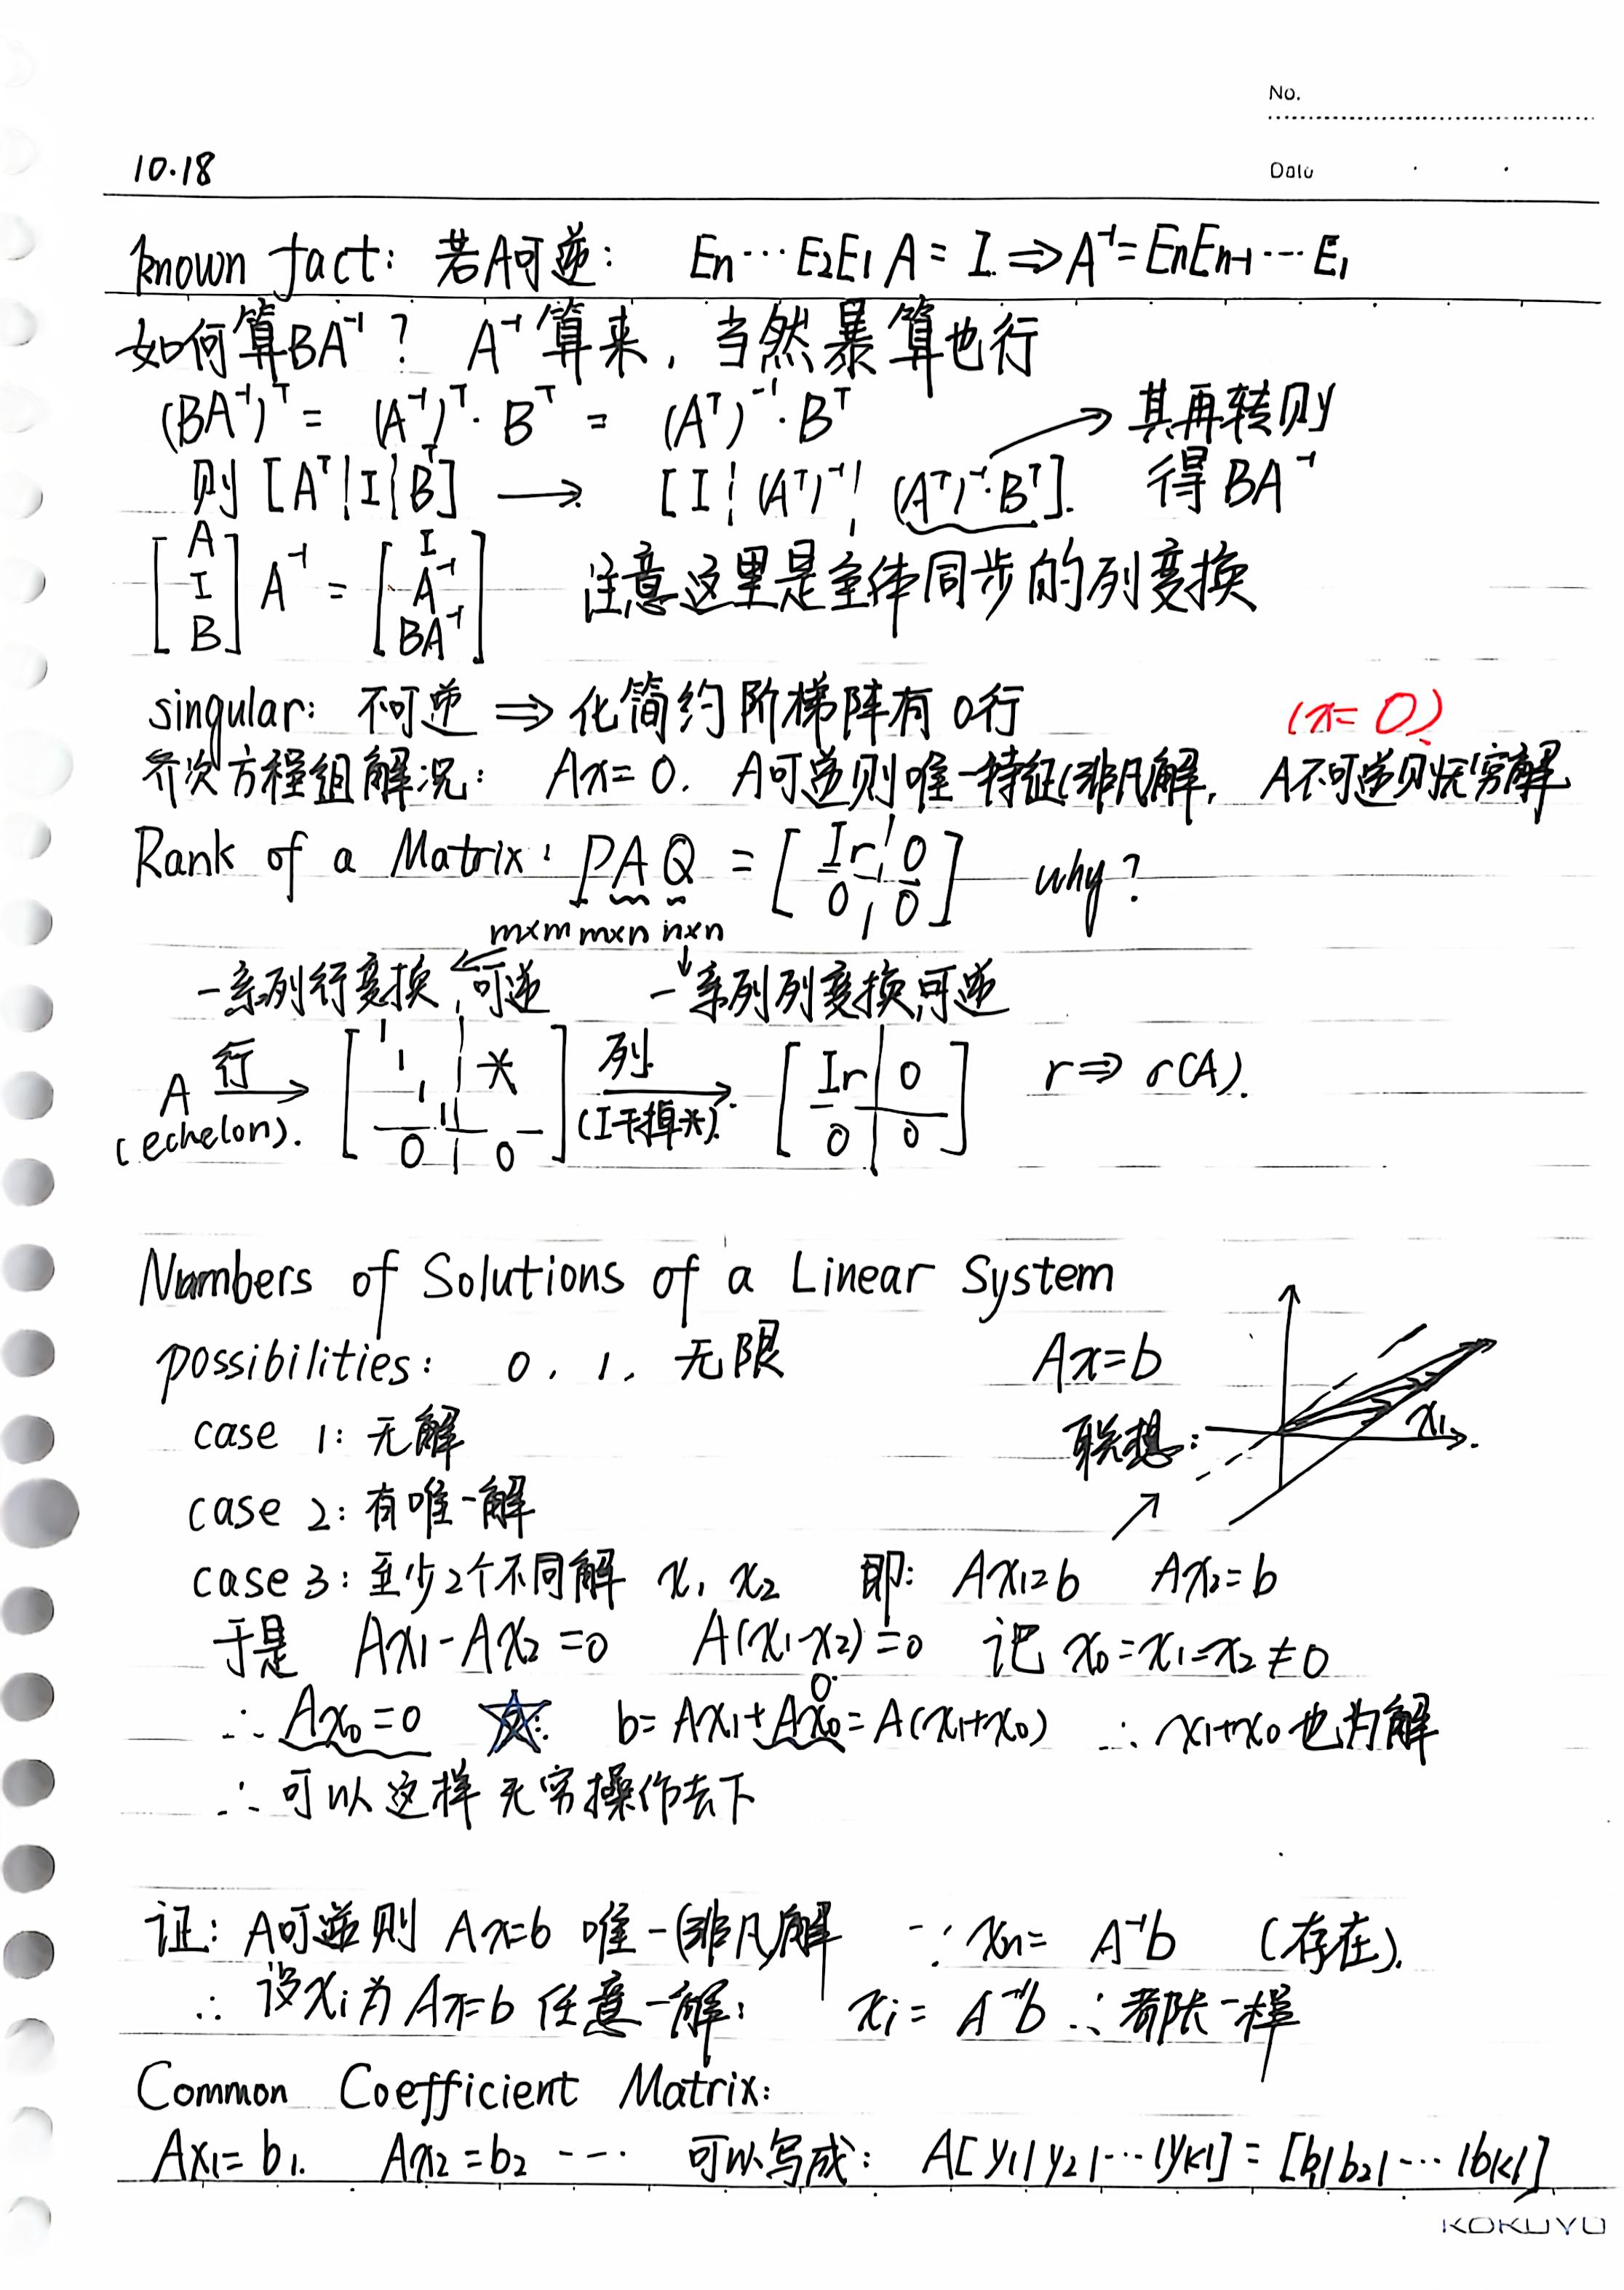 No.
Date
10.18
known fact: 若A可逆: En⋯E2E1 A = I. ⇒ A⁻¹ = EnEn-1⋯E1
如何算BA⁻¹? A⁻¹算来, 当然暴算也行
(BA⁻¹)ᵀ = (A⁻¹)ᵀ·Bᵀ = (Aᵀ)⁻¹·Bᵀ → 其再转则
则 [Aᵀ|I|Bᵀ] → [I|(Aᵀ)⁻¹|(Aᵀ)⁻¹·Bᵀ]. 得BA⁻¹
[A I B] A⁻¹ = [I A⁻¹ BA⁻¹] 注意这里是整体同步的列变换
singular: 不可逆 ⇒ 化简约阶梯阵有0行 (x=0)
齐次方程组解况: Ax=0. A可逆则唯一特征(非凡)解, A不可逆则无穷解
Rank of a Matrix: PAQ = [Ir 0 0 0] why?
m×m m×n n×n
一系列行变换,可逆 一系列列变换,可逆
A 行→ [1 1 1 1 * 0 0] 列→ [Ir 0 0 0] r ⇒ r(A).
(echelon). (I干掉*).
Numbers of Solutions of a Linear System
possibilities: 0, 1, 无限 Ax=b
case 1: 无解 联想: x1
case 2: 有唯一解
case 3: 至少2个不同解 x1 x2 即: Ax1=b Ax2=b
于是 Ax1-Ax2=0 A(x1-x2)=0 记 x0=x1-x2≠0
∴ Ax0=0 ☆: b=Ax1+Ax0=A(x1+x0) ∴ x1+x0也为解
0
∴ 可以这样无穷操作去下
证: A可逆则 Ax=b 唯一(非凡)解 ∵ xn= A⁻¹b (存在).
∴ 设xi为Ax=b任意一解: xi= A⁻¹b ∴都长一样
Common Coefficient Matrix:
Ax1=b1. Ax2=b2 ⋯ 可以写成: A[y1|y2|⋯|yk1]=[b1|b2|⋯|bk1]
KOKUYO